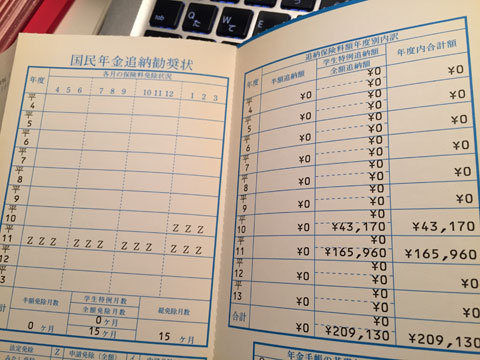 国民年金追納勧奨状
各月の保険料免除状況
年度
4 5 6 7 8 9 10 11 12 1 2 3
平
4
平
5
平
6
平
7
平
8
平
9
平
10 Z Z Z
平
11 Z Z Z Z Z Z Z Z Z Z Z Z
平
12
平
13
半額免除月数 学生特例月数 総免除月数
全額免除月数
0 ヶ月
0 ヶ月 15 ヶ月 15 ヶ月
法定免除 Z 申請免除(全額)
追納保険料額年度別内訳
年度 半額追納額 学生特例追納額 年度内合計額
全額追納額
¥0
平
4 ¥0 ¥0 ¥0
¥0
平
5 ¥0 ¥0 ¥0
¥0
平
6 ¥0 ¥0 ¥0
¥0
平
7 ¥0 ¥0 ¥0
¥0
平
8 ¥0 ¥0 ¥0
¥0
平
9 ¥0 ¥0 ¥0
¥0
平
10 ¥0 ¥43,170 ¥43,170
¥0
平
11 ¥0 ¥165,960 ¥165,960
¥0
平
12 ¥0 ¥0 ¥0
¥0
平
13 ¥0 ¥0 ¥0
¥0
合計 ¥0 ¥209,130 ¥209,130
年金手帳の基礎